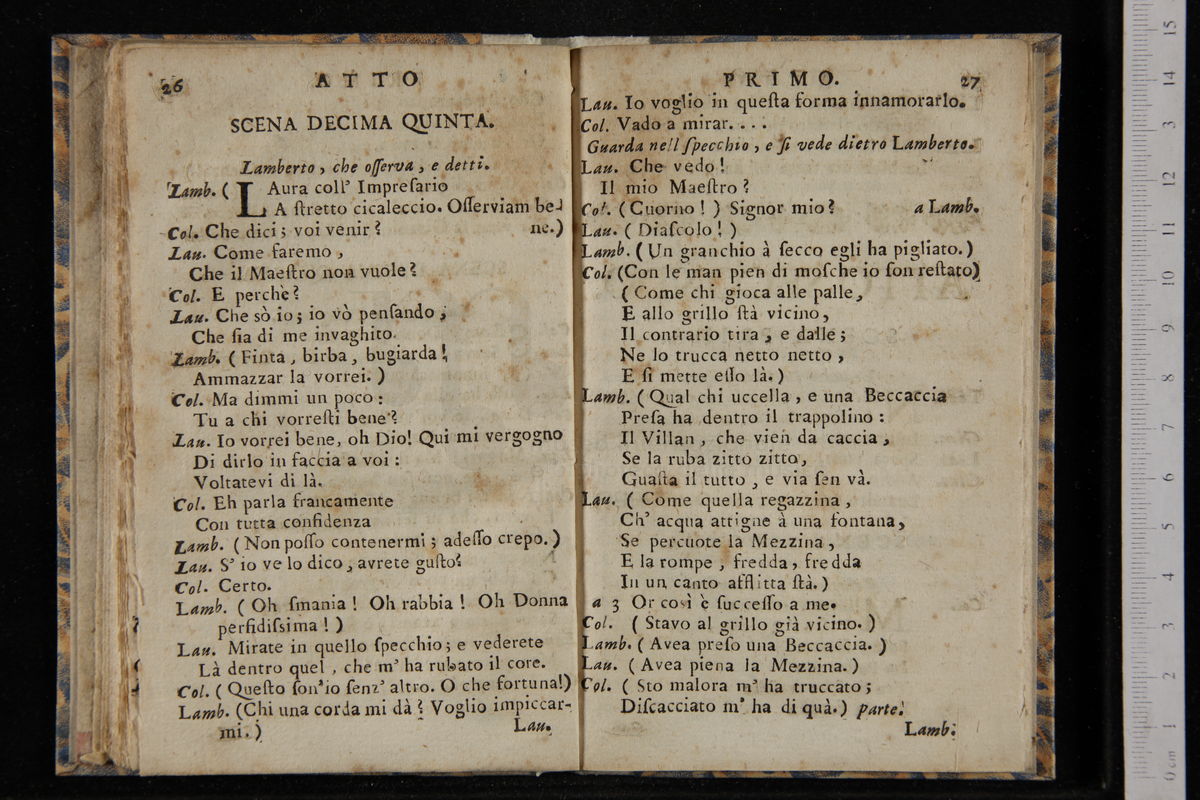 26
ATTO
SCENA DECIMA QUINTA.
Lamberto, che oſſerva, e detti.
Lamb. ( LAura coll' Impreſario
A ſtretto cicaleccio. Oſſerviam be-
Col. Che dici; voi venir? ne.)
Lau. Come faremo,
Che il Maeſtro non vuole?
Col. E perchè?
Lau. Che sò io; io vò penſando,
Che ſia di me invaghito.
Lamb. (Finta, birba, bugiarda!
Ammazzar la vorrei.)
Col. Ma dimmi un poco:
Tu a chi vorreſti bene?
Lau. Io vorrei bene, oh Dio! Qui mi vergogno
Di dirlo in faccia a voi:
Voltatevi di là.
Col. Eh parla francamente
Con tutta confidenza
Lamb. (Non poſſo contenermi; adeſſo crepo.)
Lau. S' io ve lo dico, avrete guſto?
Col. Certo.
Lamb. (Oh ſmania! Oh rabbia! Oh Donna
perfidiſsima!)
Lau. Mirate in quello ſpecchio; e vederete
Là dentro quel, che m' ha rubato il core.
Col. (Queſto ſon' io ſenz' altro. O che fortuna!)
Lamb. (Chi una corda mi dà? Voglio impiccar-
mi.)
Lau.
PRIMO.
27
Lau. Io voglio in queſta forma innamorarlo.
Col. Vado a mirar. . . .
Guarda nell ſpecchio, e ſi vede dietro Lamberto.
Lau. Che vedo!
Il mio Maeſtro?
Col. (Cuorno!) Signor mio? a Lamb.
Lau. (Diaſcolo!)
Lamb. (Un granchio à ſecco egli ha pigliato.)
Col. (Con le man pien di moſche io ſon reſtato)
(Come chi gioca alle palle,
E allo grillo ſtà vicino,
Il contrario tira, e dalle;
Ne lo trucca netto netto,
E ſi mette eſſo là.)
Lamb. (Qual chi uccella, e una Beccaccia
Preſa ha dentro il trappolino:
Il Villan, che vien da caccia,
Se la ruba zitto zitto,
Guaſta il tutto, e via ſen và.
Lau. (Come quella regazzina,
Ch' acqua attigne à una fontana,
Se percuote la Mezzina,
E la rompe, fredda, fredda
In un canto afflitta ſtà.)
a 3 Or così è ſucceſſo a me.
Col. (Stavo al grillo già vicino.)
Lamb. (Avea preſo una Beccaccia.)
Lau. (Avea piena la Mezzina.)
Col. (Sto malora m' ha truccato;
Diſcacciato m' ha di quà.) parte.
Lamb.
15
14
13
12
11
10
9
8
7
6
5
4
3
2
1
0 cm